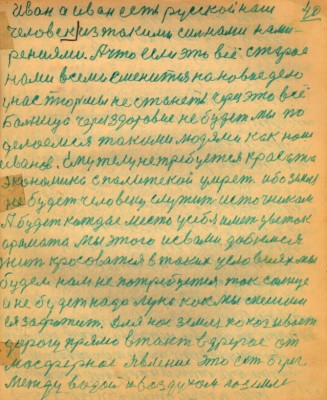 Иван а иван есть русской наш 40
человек из такими силнами наме-
рениями А что если это всё старое
нами всеми сменится на новое дело
у нас тюрьмы не станеть через это всё
Больница через здоровие не будет мы по
делаемся такими людями как наш
иванов. Ему телу не требуется красота
экономика с политекой умрет и обоз
не будет человеку служит источником
А будет каждое место у себя имет цветок
аромата мы этого и с вами добюмся
жит красоватся в таких условиях мы
будем нам не потребуется так солнце
а не будет надо луны как мы спешим
ея захватит. Для нас земля показывает
дорогу прямо в такт в другое ат
мосферное явление это сот берег
между водой и воздухом по земле